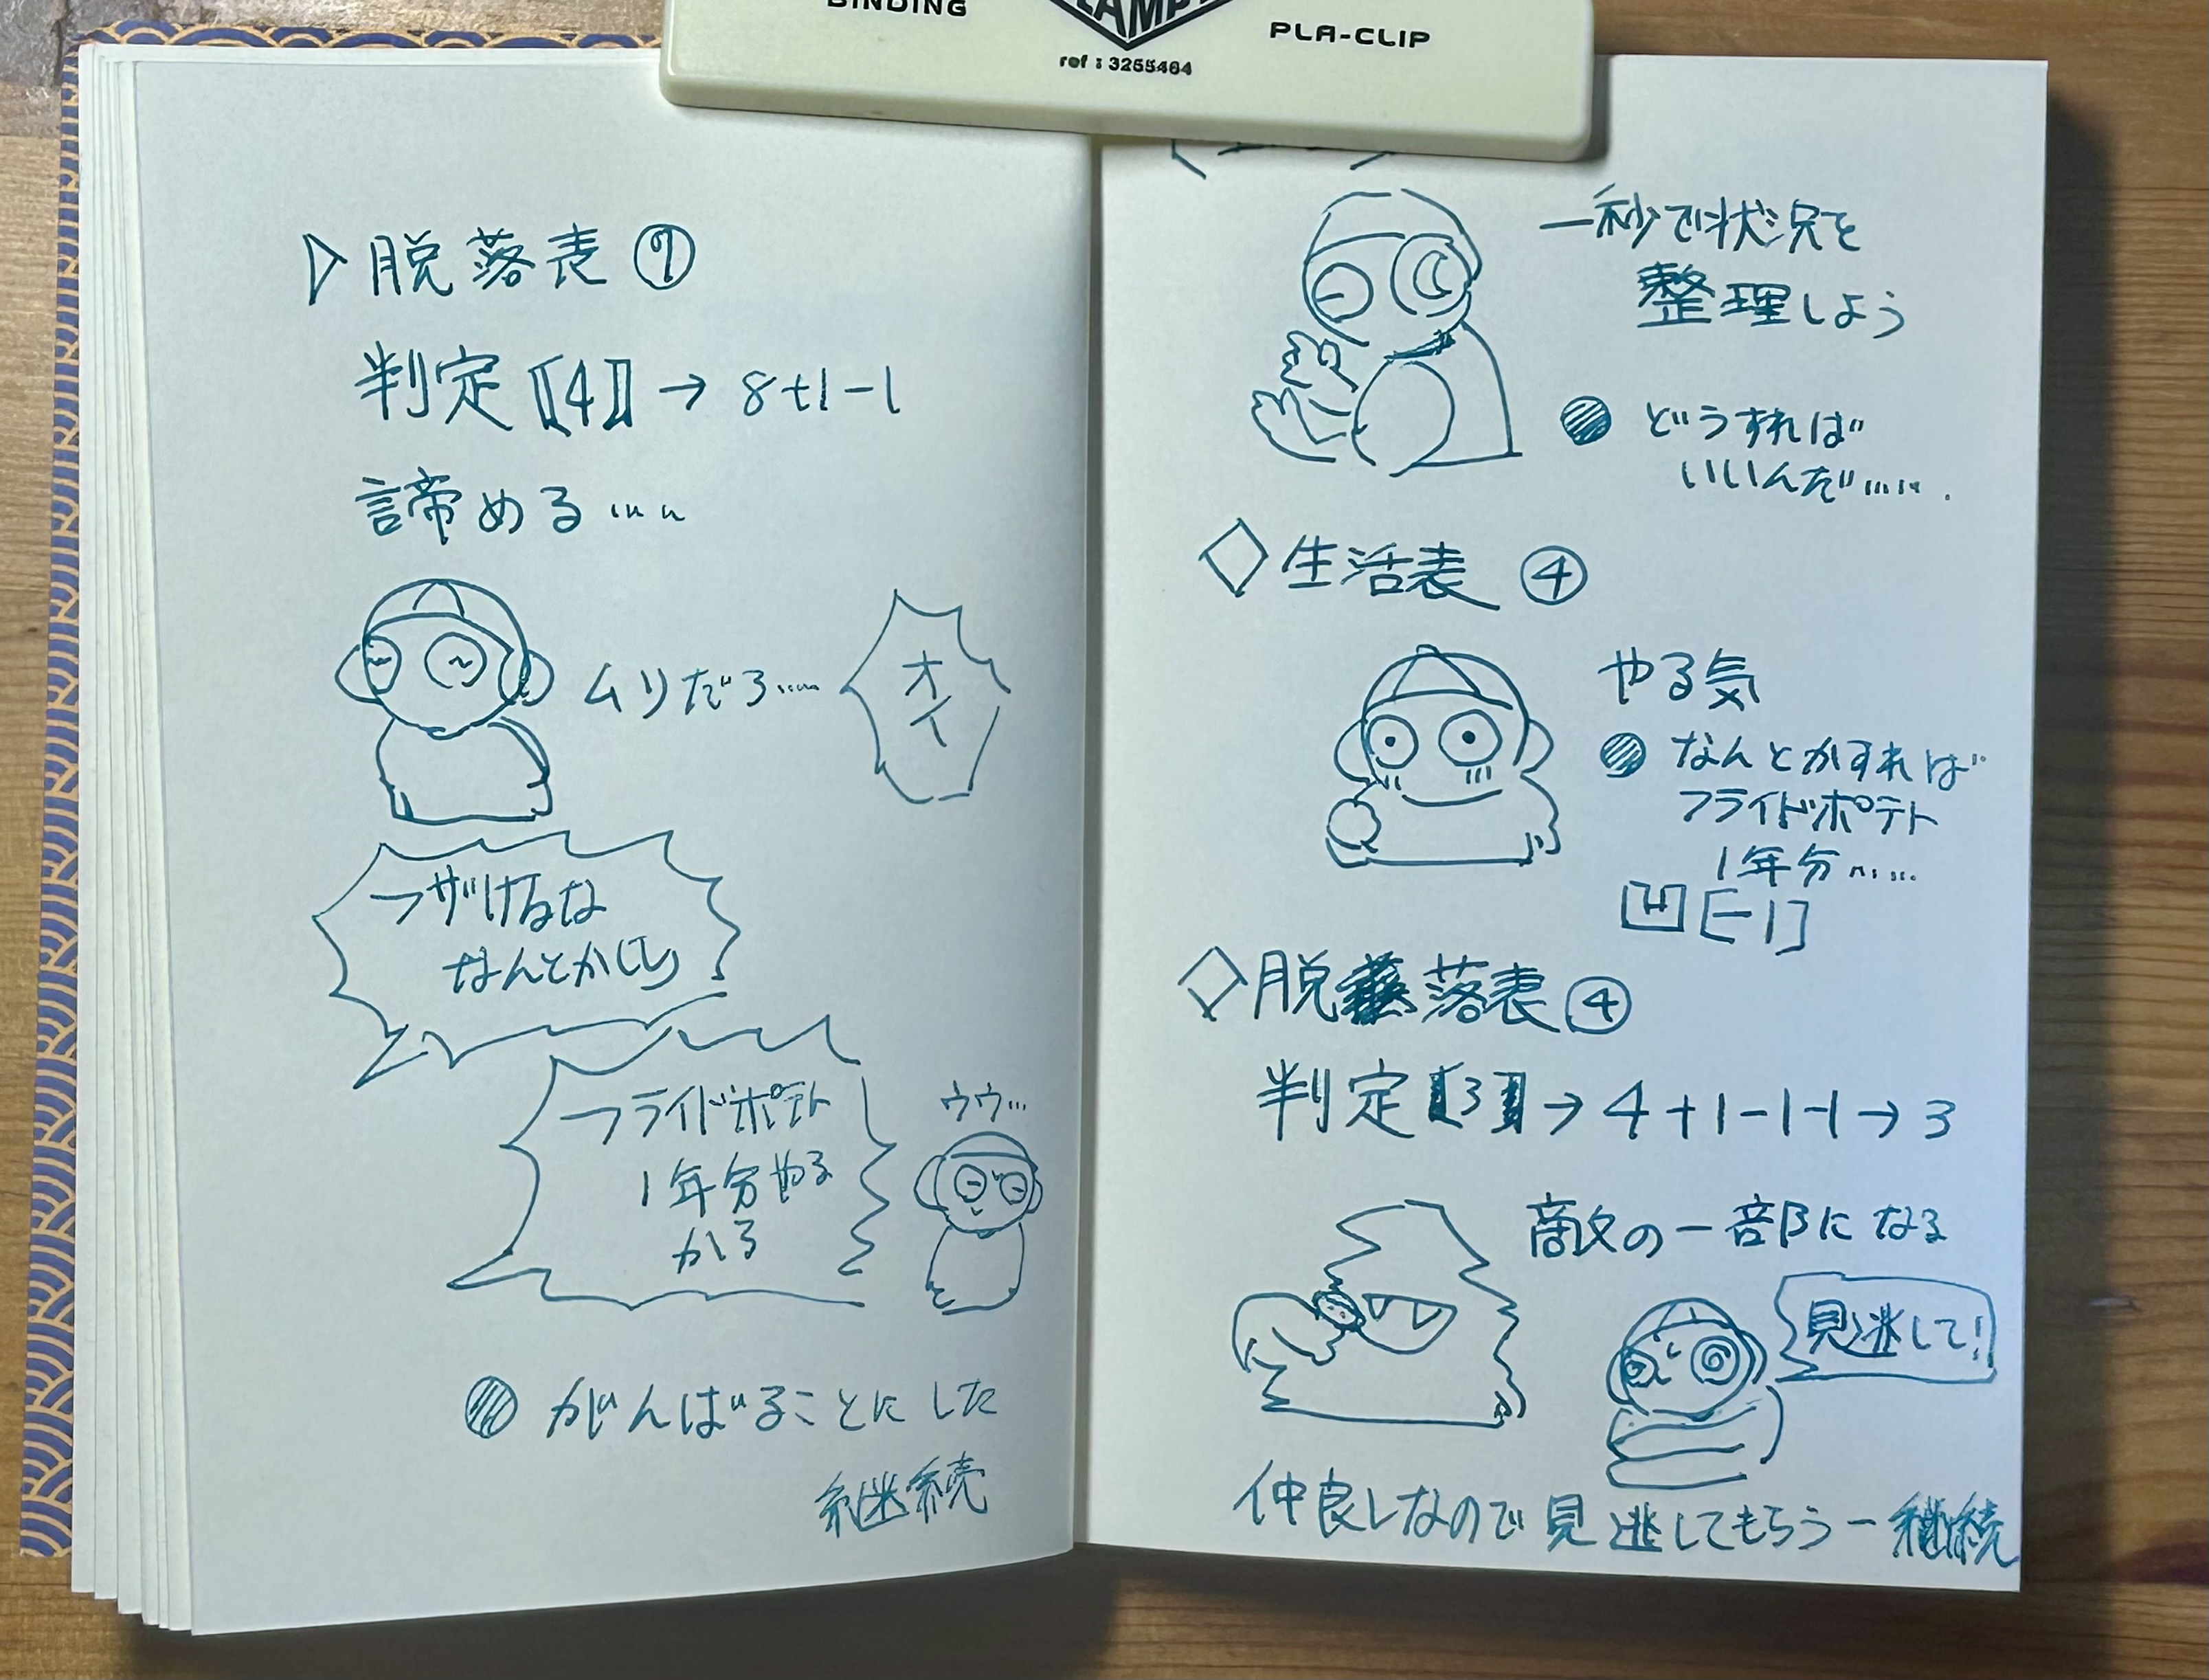 BINDING
PLA-CLIP
ref : 3255464
▷脱落表⑨
判定〖4〗→ 8+1-1
諦める……
ムリだろ……
オイ
フザけるな
なんとかしろ
フライドポテト
1年分やる
から
ウウ…
がんばることにした
継続
一秒で状況を
整理しよう
どうすれば
いいんだ…….
◇生活表 ④
やる気
なんとかすれば
フライドポテト
1年分……
凹[-1]
◇脱落表④
判定【3】→4+1-1-1→3
敵の一部になる
見逃して!
仲良しなので見逃してもらうー継続